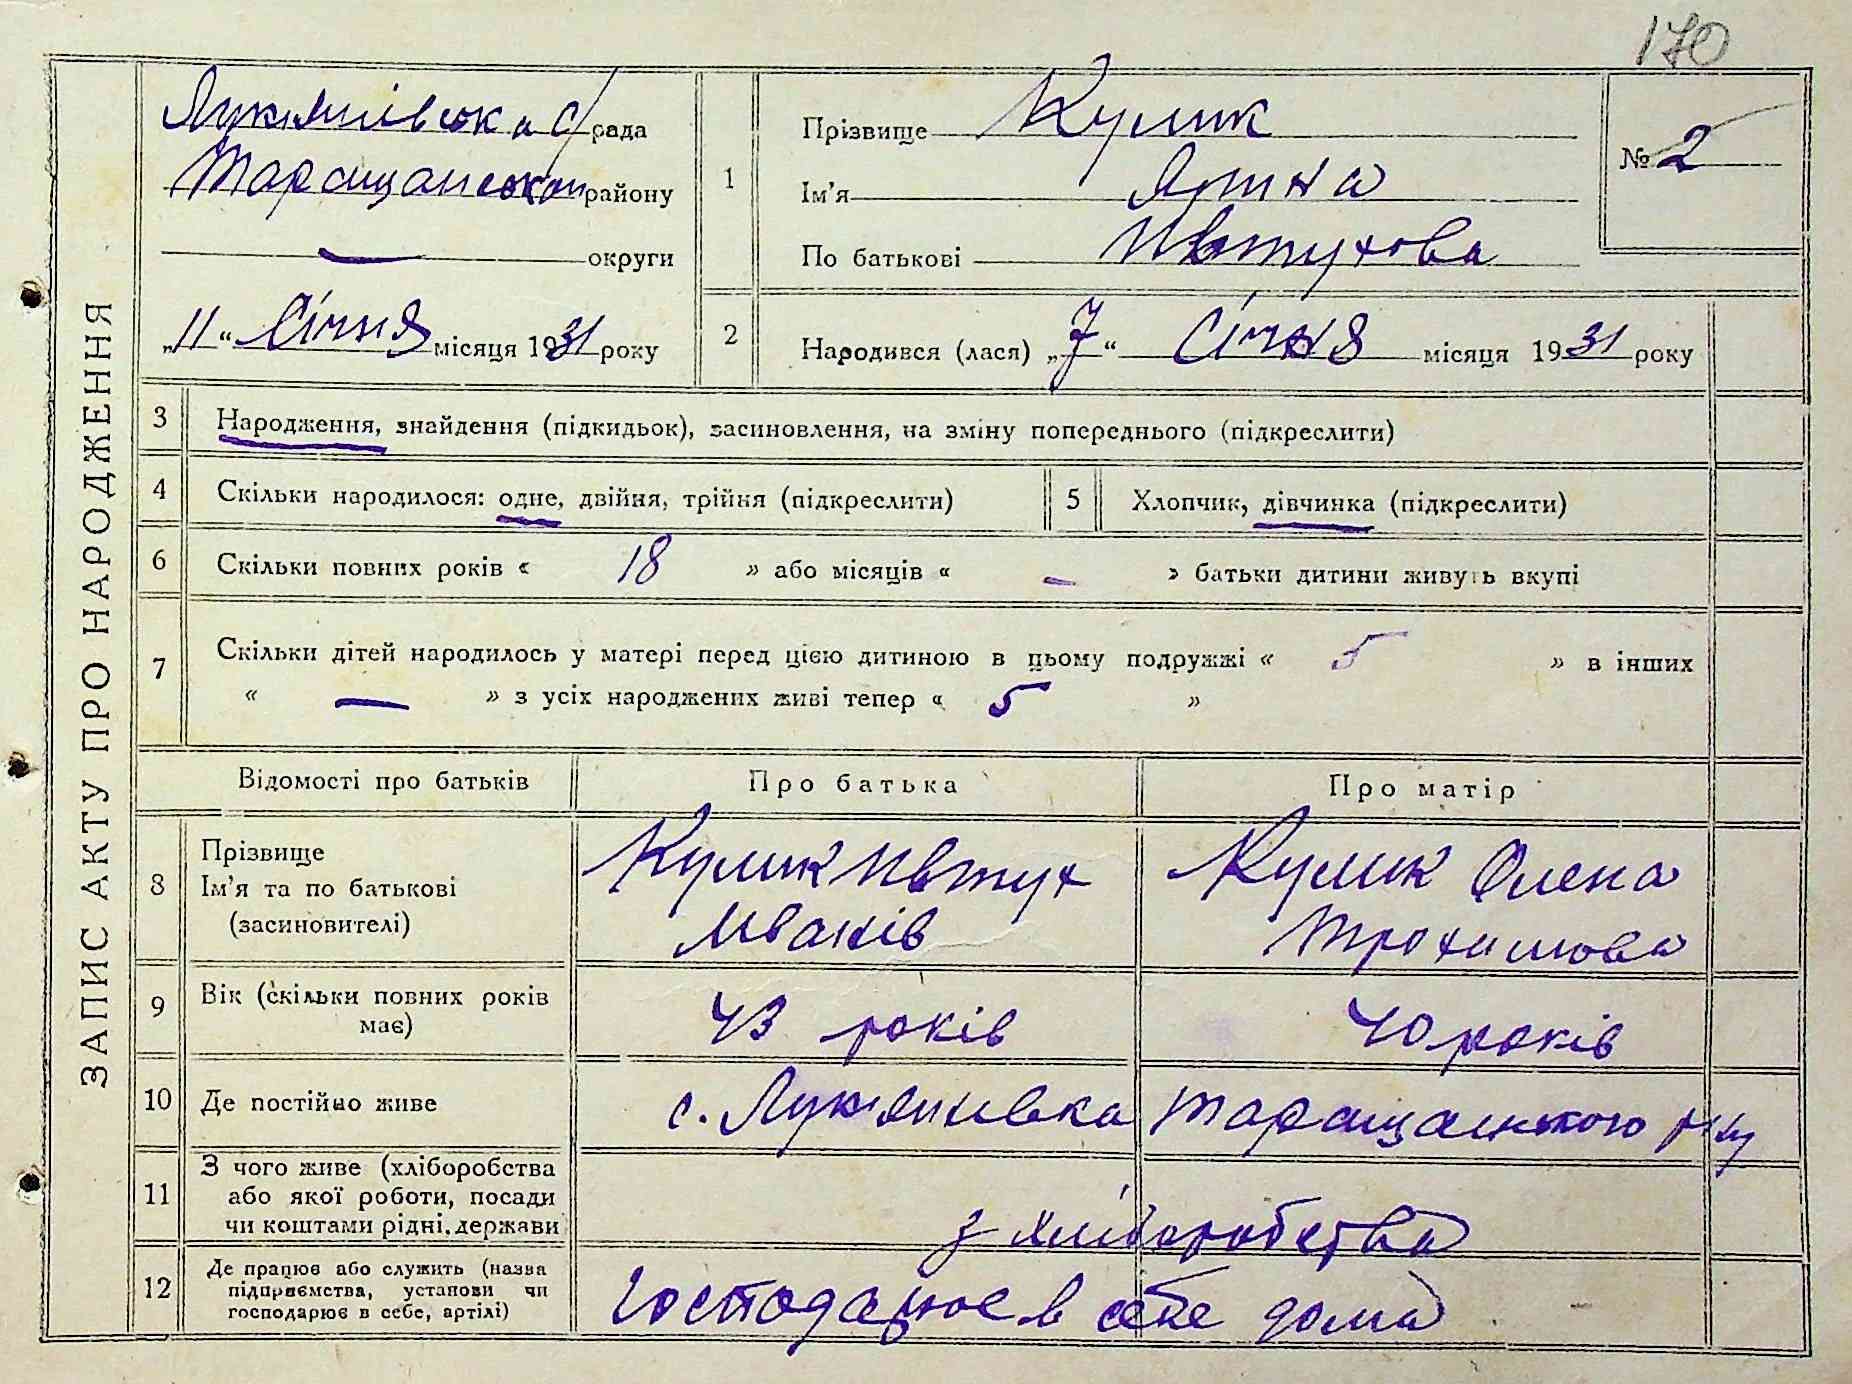 170
ЗАПИС АКТУ ПРО НАРОДЖЕННЯ
Лукянівська с/рада
Таращанськои району
— округи
„11“ Січня місяця 1931 року
1
Прізвище Кулик
Ім'я Ярина
По батькові Ивтухова
№ 2
2
Народився (лася) „7“ Січня місяця 1931 року
3 Народження, знайдення (підкидьок), засиновлення, на зміну попереднього (підкреслити)
4 Скільки народилося: одне, двійня, трійня (підкреслити)
5 Хлопчик, дівчинка (підкреслити)
6 Скільки повних років « 18 » або місяців « — » батьки дитини живуть вкупі
7 Скільки дітей народилось у матері перед цією дитиною в цьому подружжі « 5 » в інших
« — » з усіх народжених живі тепер « 5 »
Відомості про батьків Про батька Про матір
8 Прізвище
Ім'я та по батькові
(засиновителі)
Кулик Ивтух
Иванів
Кулик Олена
Трохимова
9 Вік (скільки повних років
має)
43 років
40 років
10 Де постійно живе
с. Лукянивка Таращанського р-ну
11 З чого живе (хліборобства
або якої роботи, посади
чи коштами рідні, держави
з хліборобства
12 Де працює або служить (назва
підприємства, установи чи
господарює в себе, артілі)
Господарює в себе дома